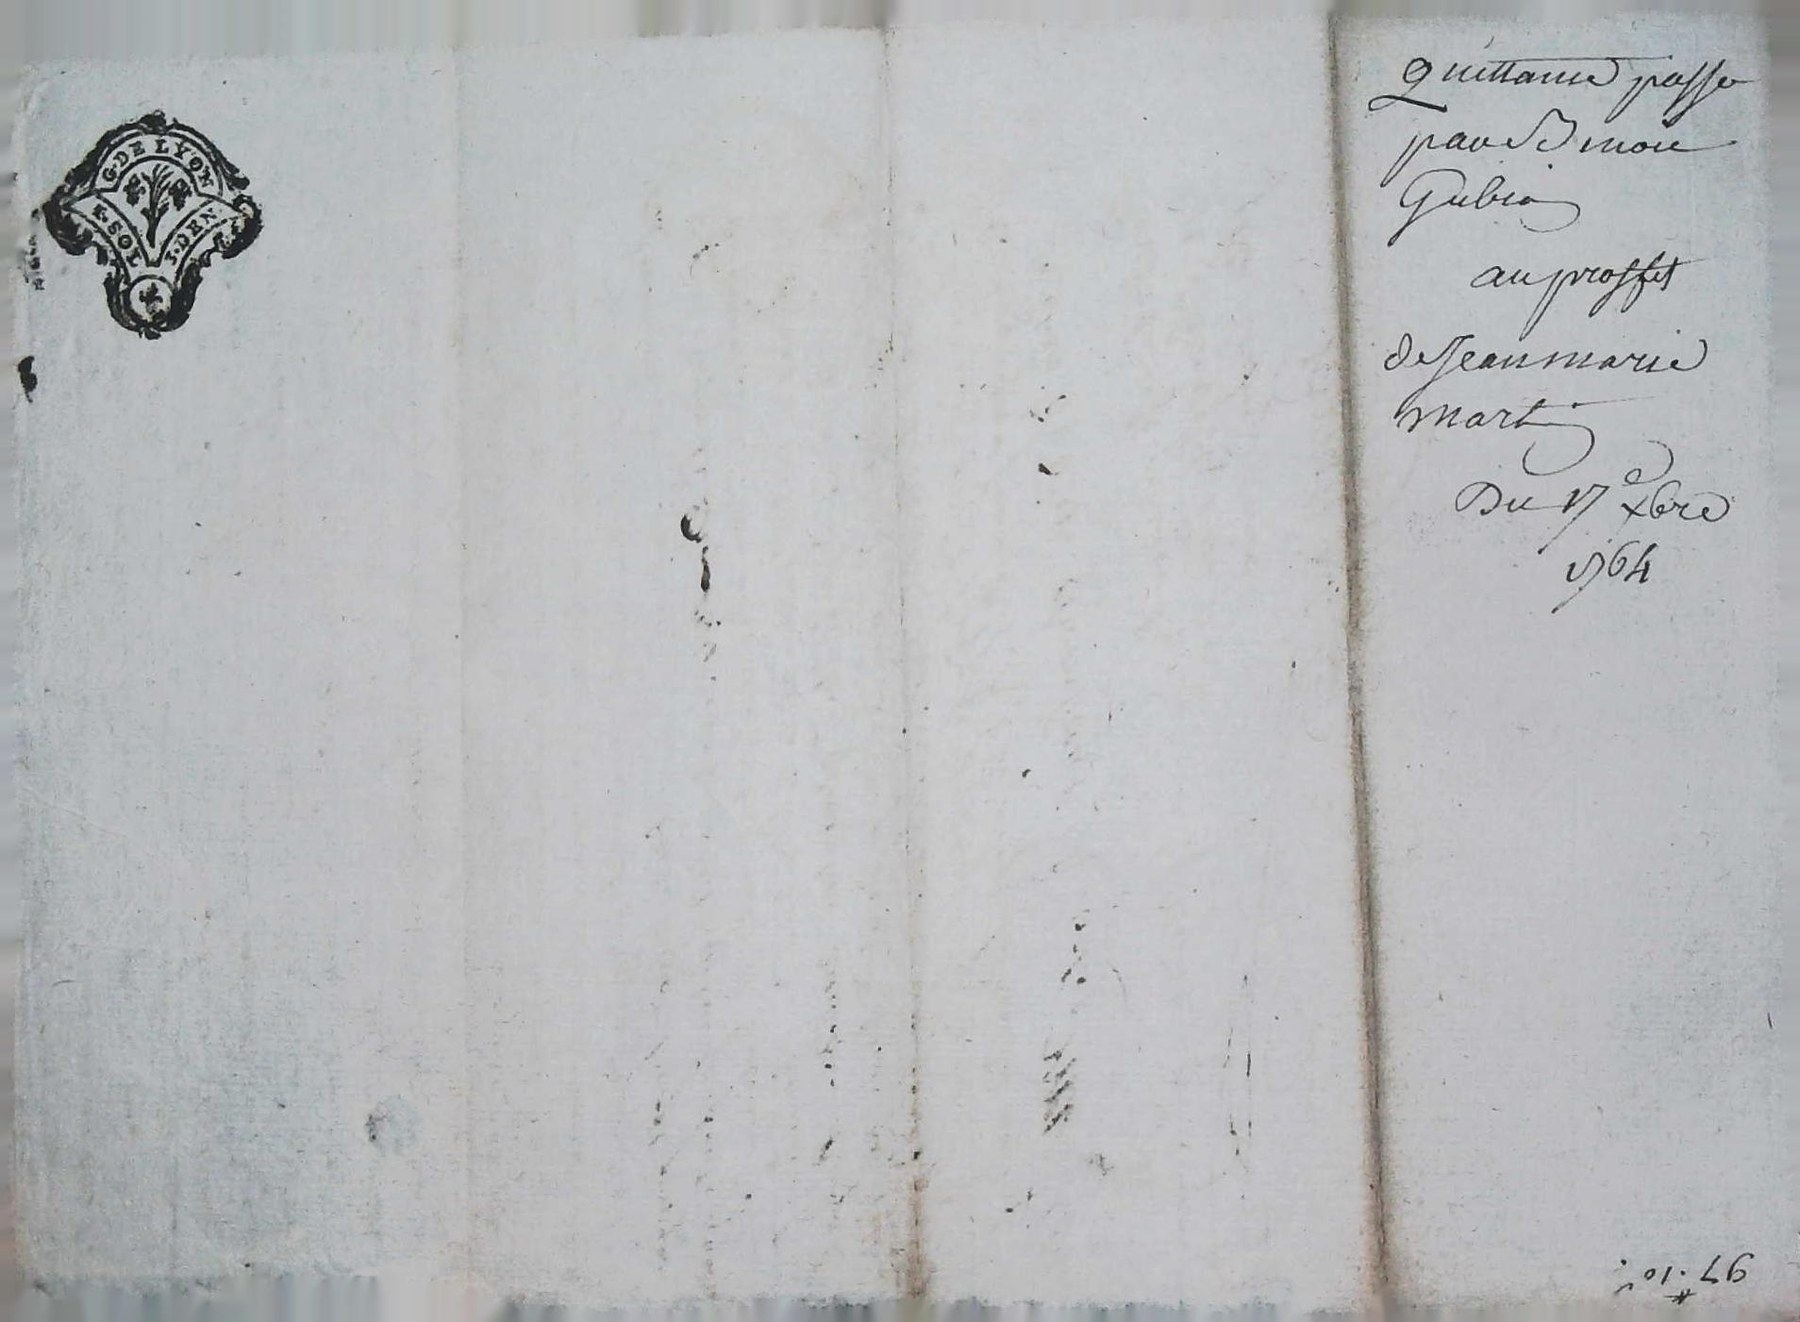 G. DE LYON
I. SOL
I. DEN.
quittance passe
par Simon
Gubian
au proffit
de Jean marie
martin
Du 17e xbre
1764
97. 10